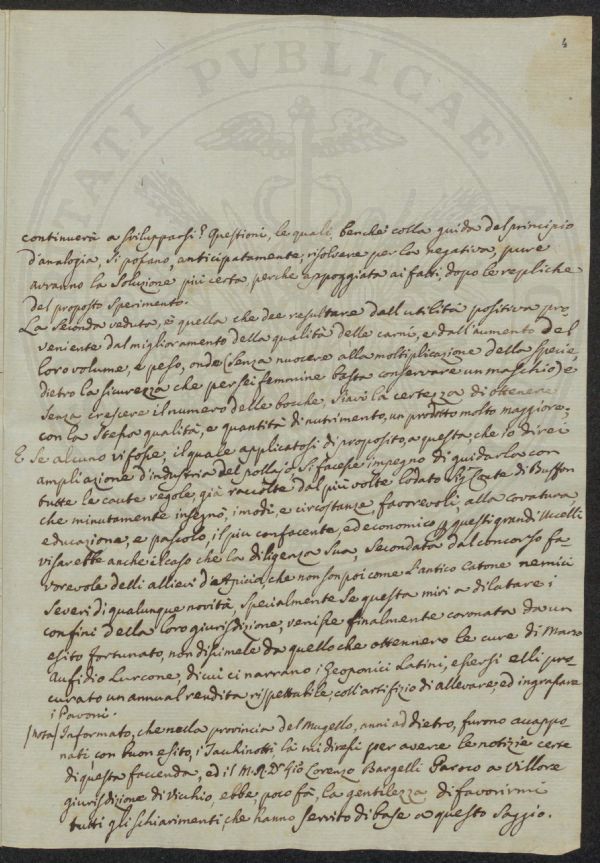 4
continuerà a svilupparsi? Questioni, le quali, benchè colla guida del principio
d'analogia, si posano, anticipatamente, risolvere per la negativa, pure
avranno la Soluzione più certa, perche appoggiata ai fatti, dopo le repliche
del proposto sperimento.
La seconda veduta, è quella che dee resultare dall'utilità positiva pro-
veniente dal miglioramento della qualità delle carni, e dall'aumento del
loro volume, e peso, onde (Senza nuocere alla moltiplicazione della specie,
dietro la sicurezza che per sei femmine basta conservare un maschio) e
senza crescere il numero delle bocche, siavi la certezza di ottenere
con la stessa qualità, e quantità di nutrimento, un prodotto molto maggiore.
E se alcuno vi fosse, il quale applicatosi di proposito, a questa, che io direi
ampliazione d'industria del pollajo si facesse impegno di guidarla con
tutte le caute regole, già raccolte dal più volte lodato Sig. Conte di Buffon
che minutamente insegnò, i modi, e circostanze, favorevoli, alla covatura
educazione, e pascolo, il più confacente, ed economico p questi grandi Uccelli
visarebbe anche il caso che la diligenza sua, secondata dal concorso fa
vorevole delli allievi d'Apicio, che non son poi come l'antico Catone nemici
severi di qualunque novità, specialmente se questa miri a dilatare i
confini della loro giurisdizione, venisse finalmente coronata da un
esito fortunato, non dissimele da quello che ottennero le cure di Marco
Aufidio Lurcone, di cui ci narrano i Geoponici Latini, essersi elli pro-
curato un annual rendita rispettabile, coll'artifizio di allevare, ed ingrassare
i Pavoni.
(nota) Informato, che nella provincia del Mugello, anni addietro, furono accappo
nati, con buon esito, i Tacchinotti là mi diressi per averne le notizie certe
di questa facenda, ed il M.R.D. Gio Lorenzo Bargelli Paroco a Villore
giurisdizione di Vicchio, ebbe, poco fà, la gentilezza di favorirmi
tutti gli schiarimenti, che hanno servito di base a questo Saggio.
PVBLICAE